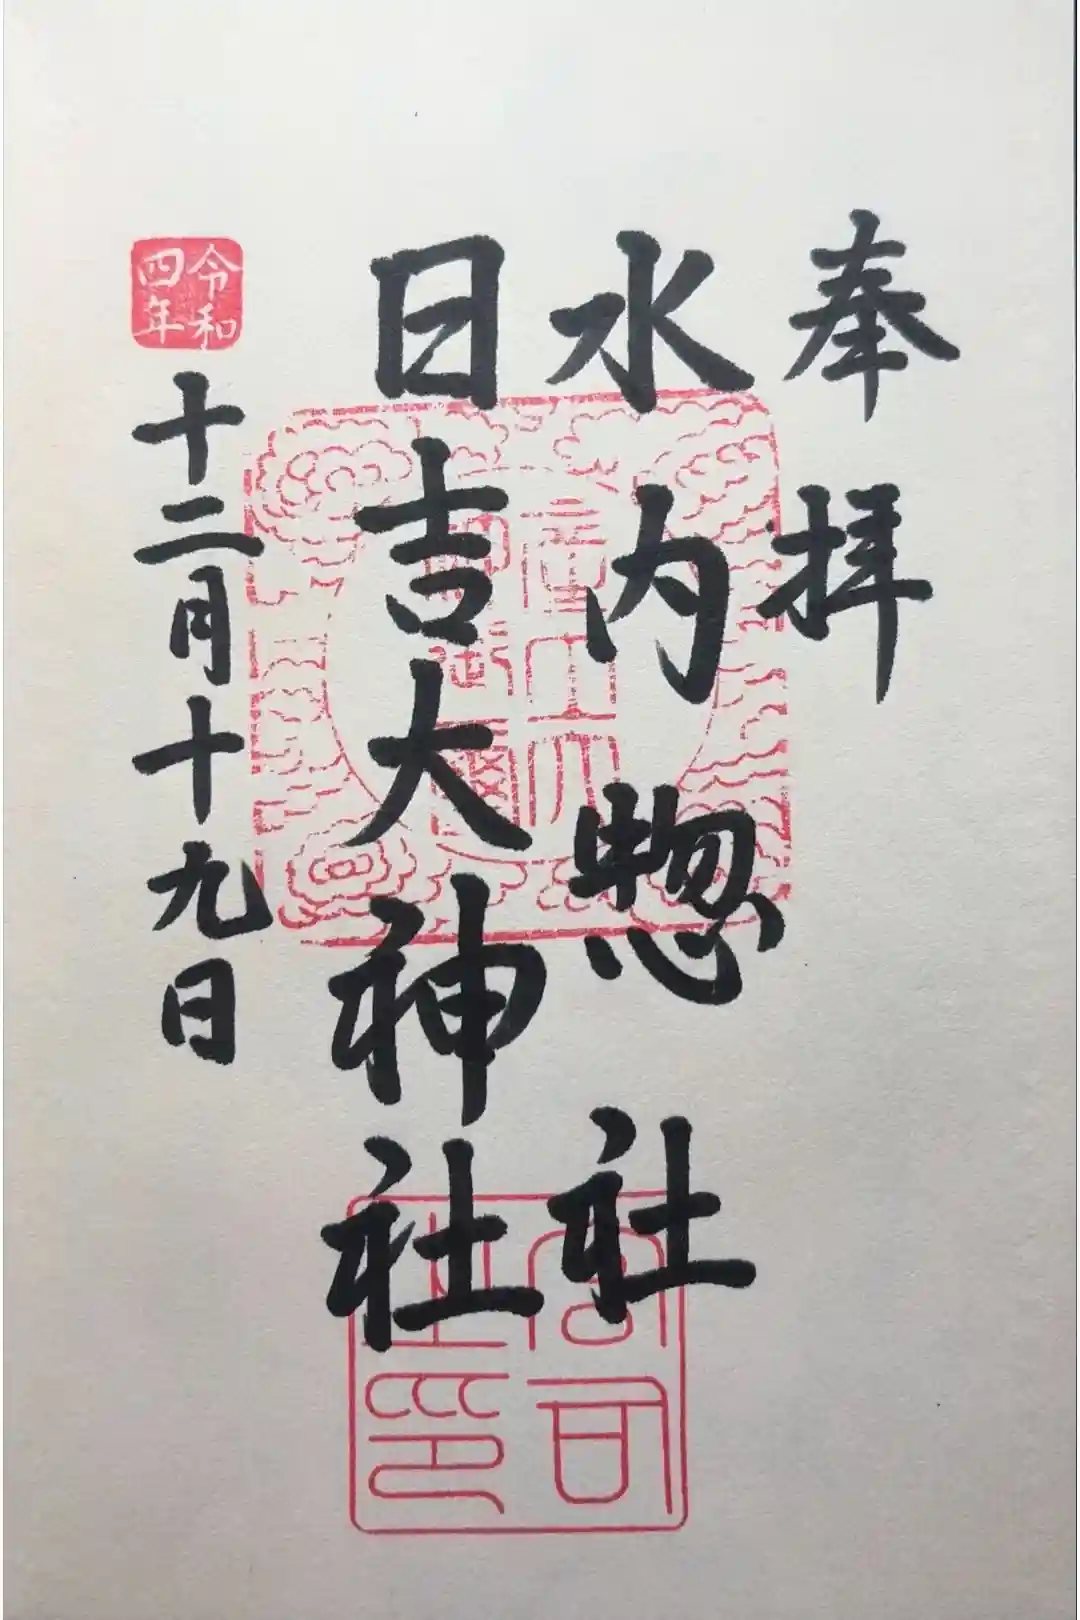 奉拝
水内惣社
日吉大神社
令和
四年
十二月十九日
宮司
之印